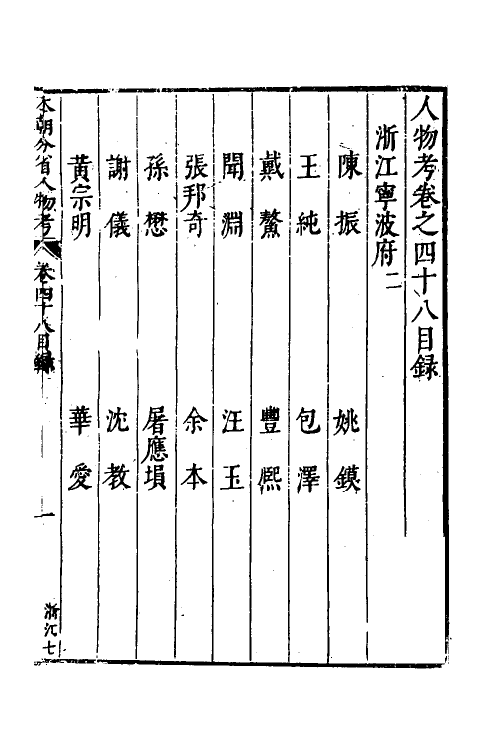 人物考卷之四十八目録
浙江寧波府二
陳振 姚鏌
王純 包澤
戴鰲 豐熙
聞淵 汪玉
張邦奇 余本
孫懋 屠應塤
謝儀 沈教
黃宗明 華愛
本朝分省人物考 卷四十八目録 一 浙江七